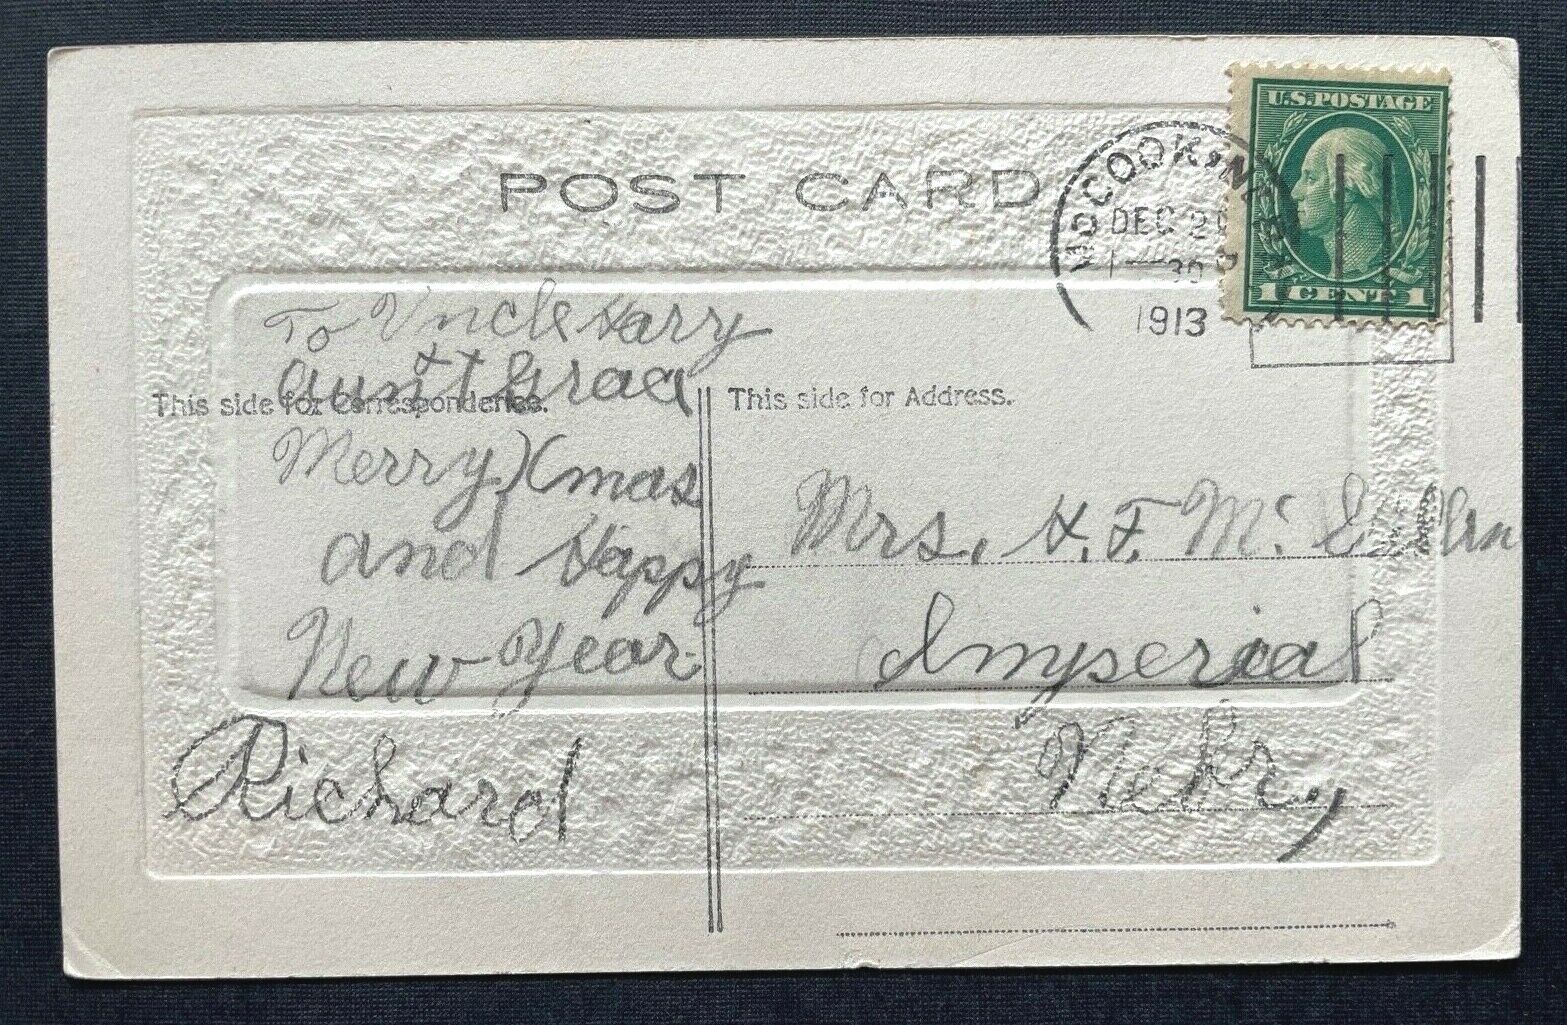 POST CARD
U.S. POSTAGE
1 CENT 1
McCOOK, NEBR.
DEC 2
1 — 30 P
1913
To Uncle Harry
+
Aunt Graa
This side for Correspondence.
Merry Xmas
and Happy
New Year.
Richard
This side for Address.
Mrs. H. F. Mc
Imperial
Nebr,